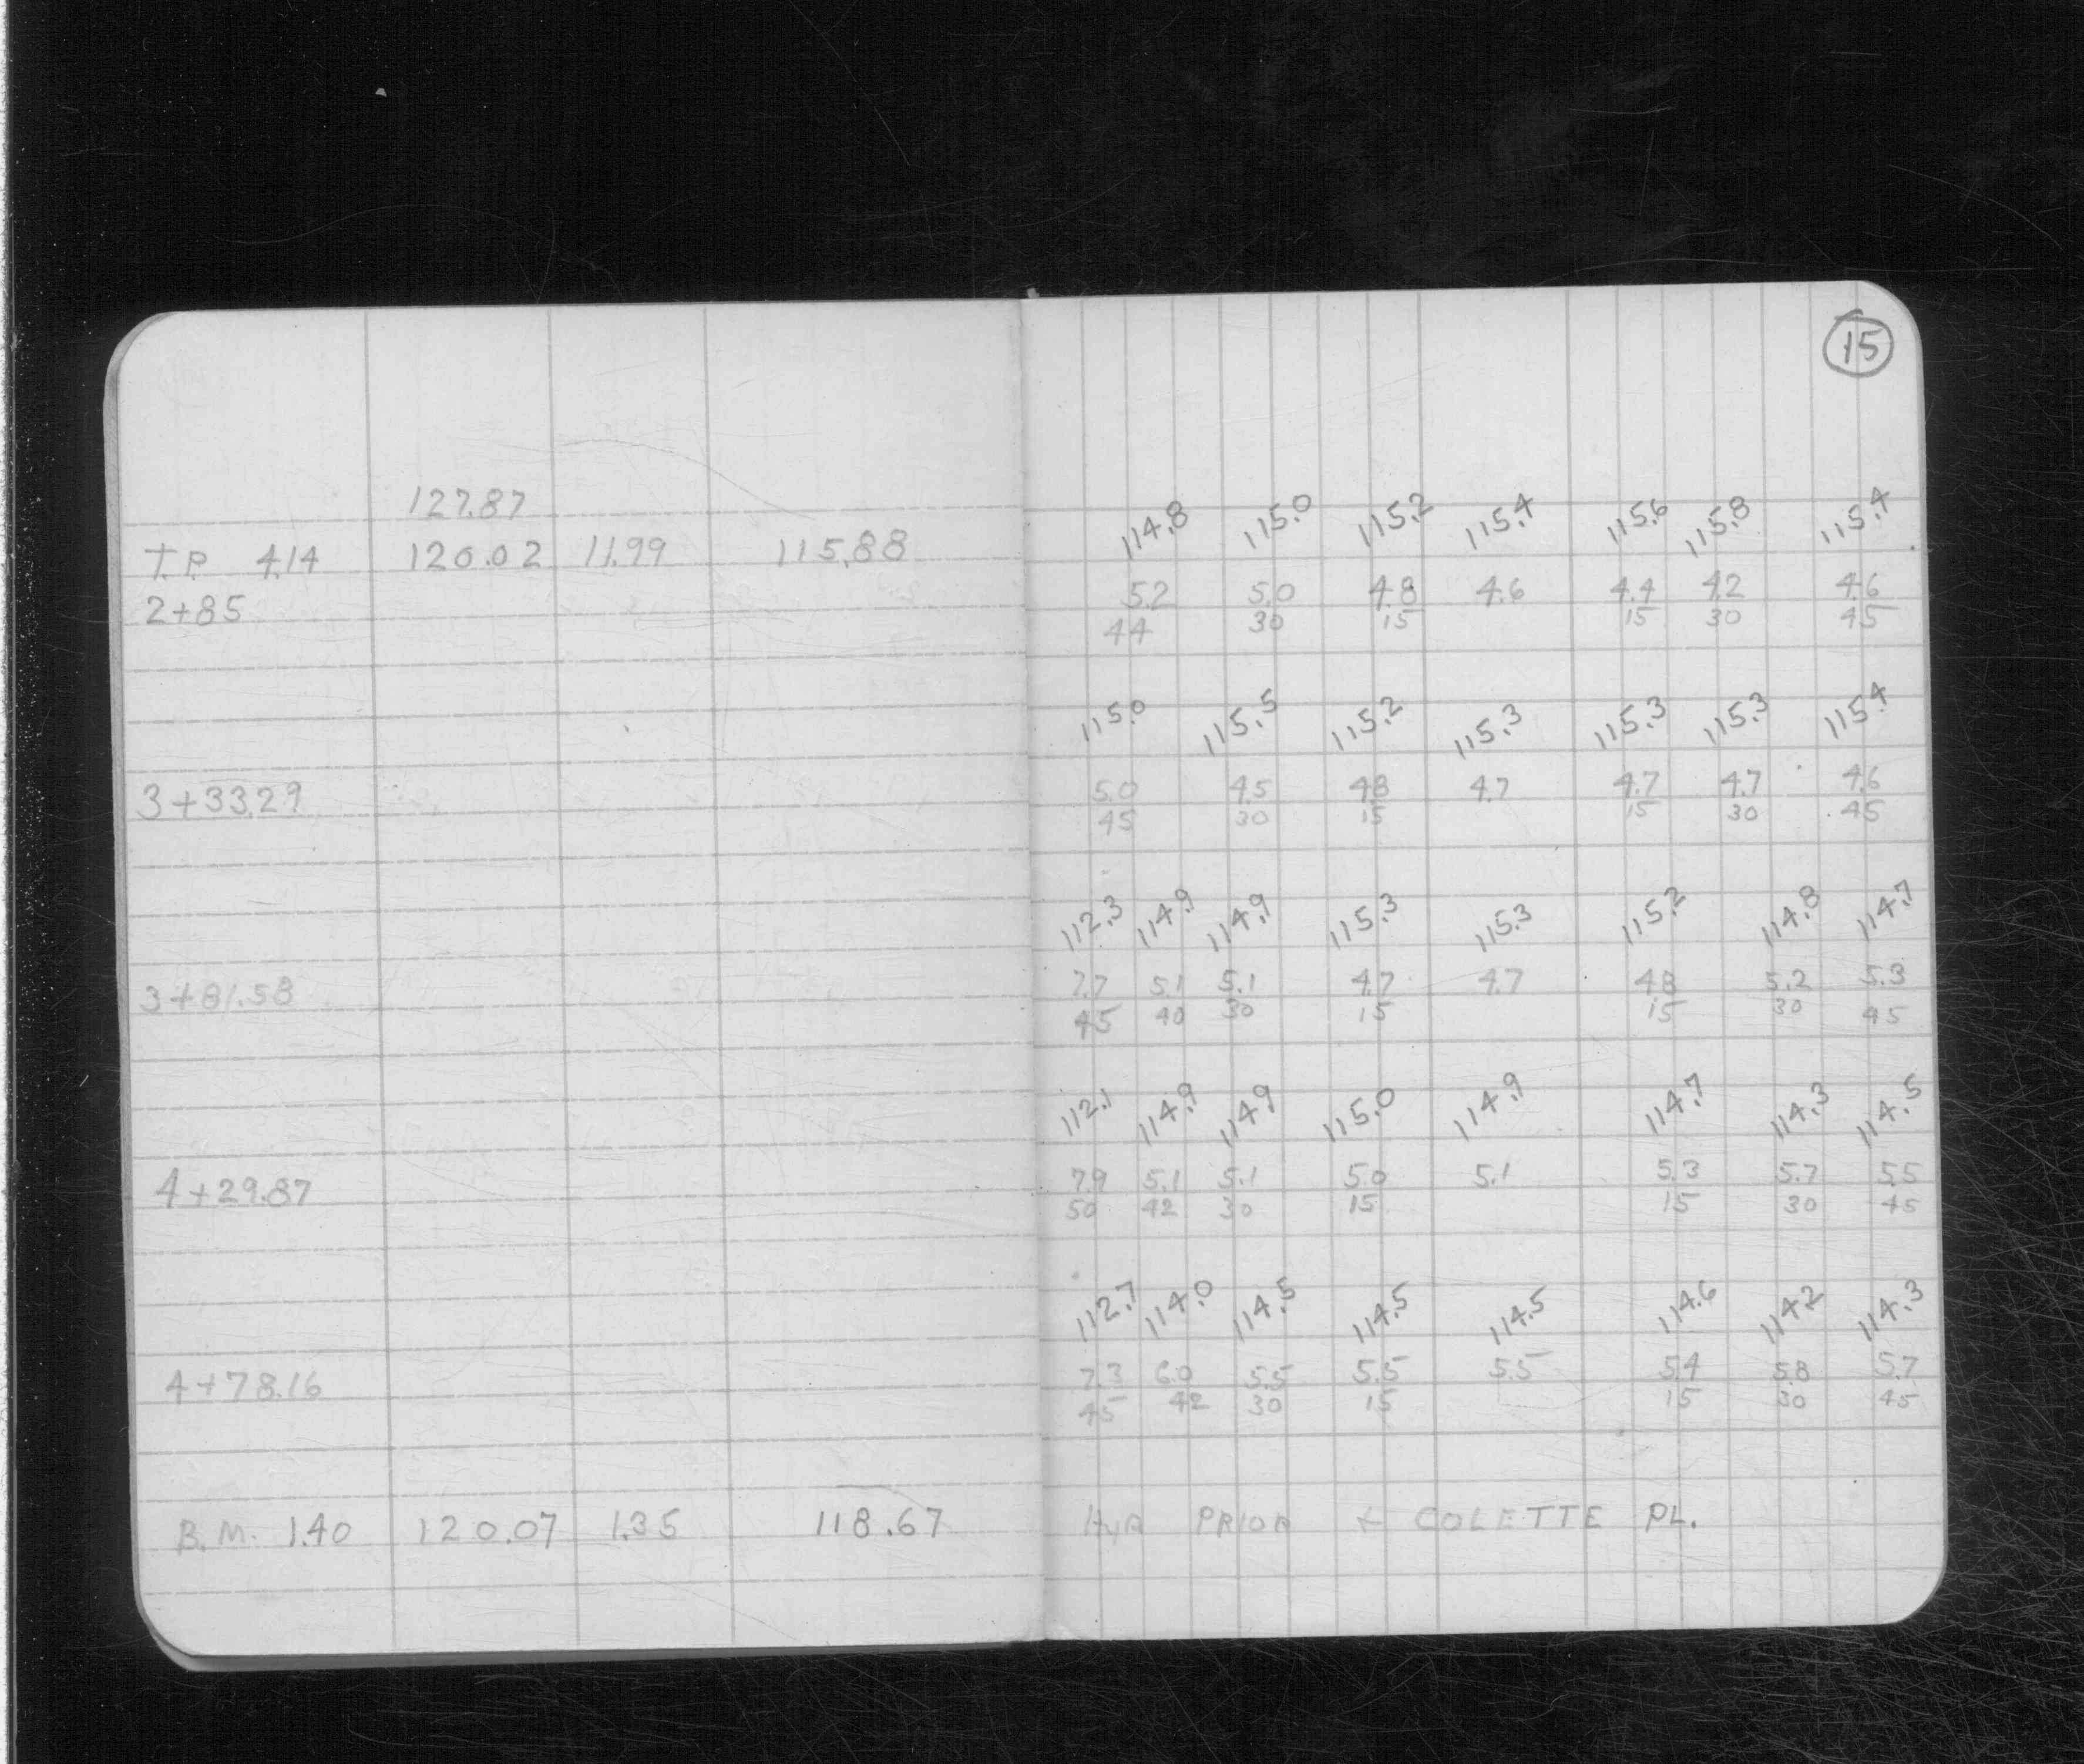 15
127.87
T.P. 4.14 120.02 11.99 115.88 114.8 115.0 115.2 115.4 115.6 115.8 115.4
5.2 5.0 4.8 4.6 4.4 4.2 4.6
2+85 44 30 15 15 30 45
115.0 115.5 115.2 115.3 115.3 115.3 115.4
3+33.29 5.0 4.5 4.8 4.7 4.7 4.7 4.6
45 30 15 15 30 45
112.3 114.9 114.9 115.3 115.3 115.2 114.8 114.7
3+81.58 7.7 5.1 5.1 4.7 4.7 4.8 5.2 5.3
45 40 30 15 15 30 45
112.1 114.9 114.9 115.0 114.9 114.7 114.3 114.5
4+29.87 7.9 5.1 5.1 5.0 5.1 5.3 5.7 5.5
50 42 30 15 15 30 45
112.7 114.0 114.5 114.5 114.5 114.6 114.2 114.3
4+78.16 7.3 6.0 5.5 5.5 5.5 5.4 5.8 5.7
45 42 30 15 15 30 45
B.M. 1.40 120.07 1.35 118.67 HYD PRIOR + COLETTE PL.